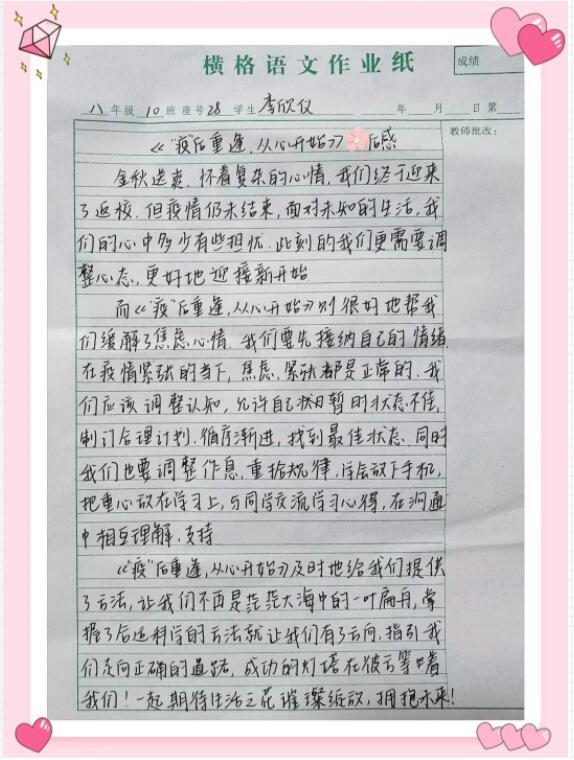 横格语文作业纸
成绩
八年级10班座号28学生李欣仪 年 月 日第
教师批改：
《“疫”后重逢，从心开始》后感
金秋送爽，怀着复杂的心情，我们终于迎来
了返校．但疫情仍未结束，面对未知的生活，我
们的心中多少有些担忧．此刻的我们更需要调
整心态，更好地迎接新开始
而《“疫”后重逢，从心开始》则很好地帮我
们缓解了焦虑心情．我们要先接纳自己的情绪
在疫情紧张的当下，焦虑、紧张都是正常的．我
们应该调整认知，允许自己暂时状态不佳，
制订合理计划．循序渐进，找到最佳状态．同时
我们也要调整作息，重拾规律，学会放下手机，
把重心放在学习上，与同学交流学习心得，在沟通
中相互理解、支持
《“疫”后重逢，从心开始》及时地给我们提供
了方法，让我们不再是茫茫大海中的一叶扁舟，掌
握了合适科学的方法就让我们有了方向，指引我
们走向正确的道路，成功的灯塔在彼方等着
我们！一起期待生活之花璀璨绽放，拥抱未来！